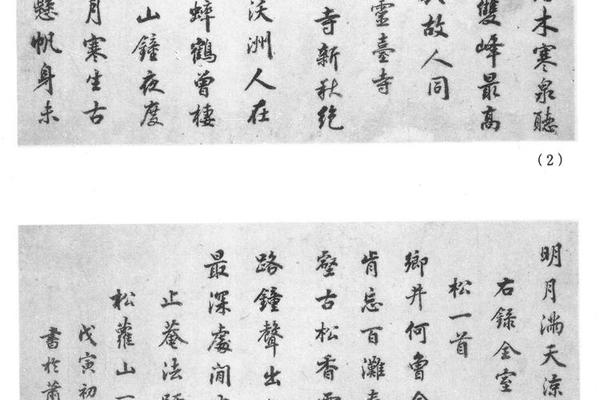 木寒泉聽
雙峰最高
故人同
靈臺寺
寺新秋絶
沃洲人在
蟀鶴曾棲
山鐘夜度
月寒生古
懸帆身未
(2)
明月滿天涼
右錄金室
松一首
鄉井何曾
肯忘百灘
壑古松香
路鐘聲出
最深處閒
止菴法
松蘿山一
戊寅初
書於